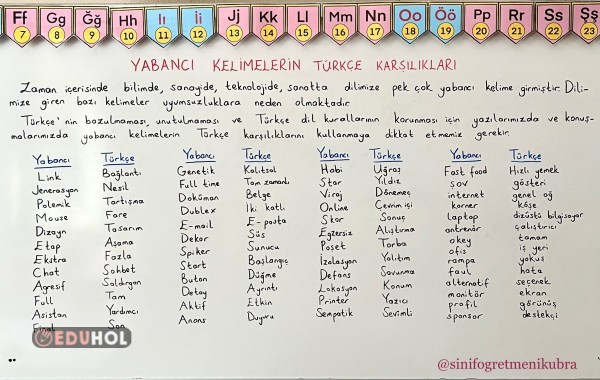 Ff Gg Ğğ Hh Iı İi Jj Kk Ll Mm Nn Oo Öö Pp Rr Ss Şş
7 8 9 10 11 12 13 14 15 16 17 18 19 20 21 22 23
YABANCI KELİMELERİN TÜRKÇE KARŞILIKLARI
Zaman içerisinde bilimde, sanayide, teknolojide, sanatta dilimize pek çok yabancı kelime girmiştir. Dili-
mize giren bazı kelimeler uyumsuzluklara neden olmaktadır.
Türkçe'nin bozulmaması, unutulmaması ve Türkçe dil kurallarının korunması için yazılarımızda ve konuş-
malarımızda yabancı kelimelerin Türkçe karşılıklarını kullanmaya dikkat etmemiz gerekir.
Yabancı Türkçe Yabancı Türkçe Yabancı Türkçe Yabancı Türkçe
Link Bağlantı Genetik Kalıtsal Hobi Uğraş Fast food Hızlı yemek
Jenerasyon Nesil Full time Tam zamanlı Star Yıldız şov gösteri
Polemik Tartışma Doküman Belge Viraj Dönemeç internet genel ağ
Mouse Fare Dublex İki katlı Online Çevrim içi korner köşe
Dizayn Tasarım E-mail E-posta Skor Sonuç laptop dizüstü bilgisayar
Etap Aşama Dekor Süs Egzersiz Alıştırma antrenör çalıştırıcı
Ekstra Fazla Spiker Sunucu Poşet Torba okey tamam
Chat Sohbet Start Başlangıç İzolasyon Yalıtım ofis iş yeri
Agresif Saldırgan Buton Düğme Defans Savunma rampa yokuş
Full Tam Detay Ayrıntı Lokasyon Konum faul hata
Asistan Yardımcı Aktif Etkin Printer Yazıcı alternatif seçenek
Final Son Anons Duyuru Sempatik Sevimli monitör ekran
profil görünüş
sponsor destekçi
EDUHOL
@sinifogretmenikubra